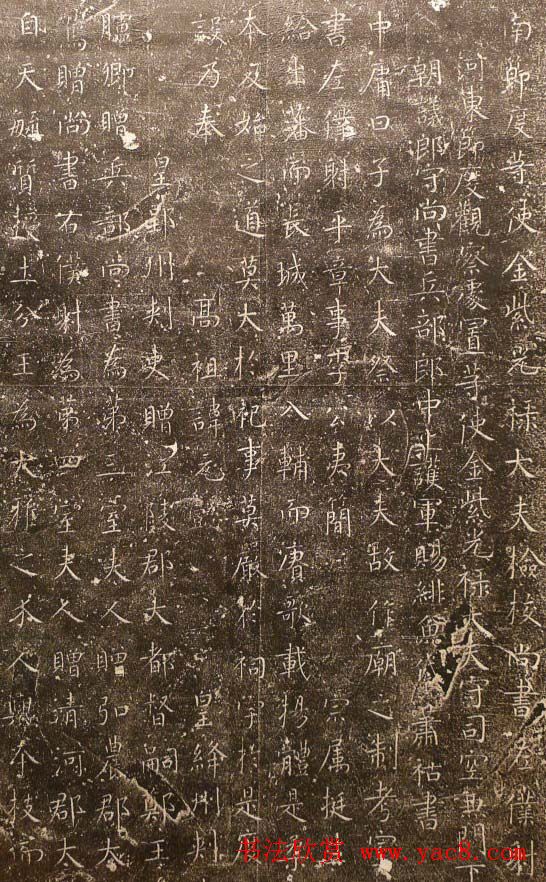 南節度等使金紫光祿大夫檢校尚書左僕射
河東節度觀察處置等使金紫光祿大夫守司空兼門下
朝議郎守尚書兵部郎中上護軍賜緋魚袋蕭祐書
中庸曰子為大夫祭以大夫故作廟之制考
書左僕射平章事李公夷簡 宗属挺
給出藩而長城萬里入輔而賡歌載揚體是
本反始之道莫大於祀事莫嚴於祠宇於是
設乃奉 高祖諱元懿 皇絳州刺
皇鄂州刺史贈江陵郡大都督嗣鄭王
臚卿贈兵部尚書為第三室夫人贈弘農郡太
鴻贈尚書右僕射為第四室夫人贈清河郡太
自天 質 土 王為大雅之 人興 本枝而
书法欣赏 www.yac8.com